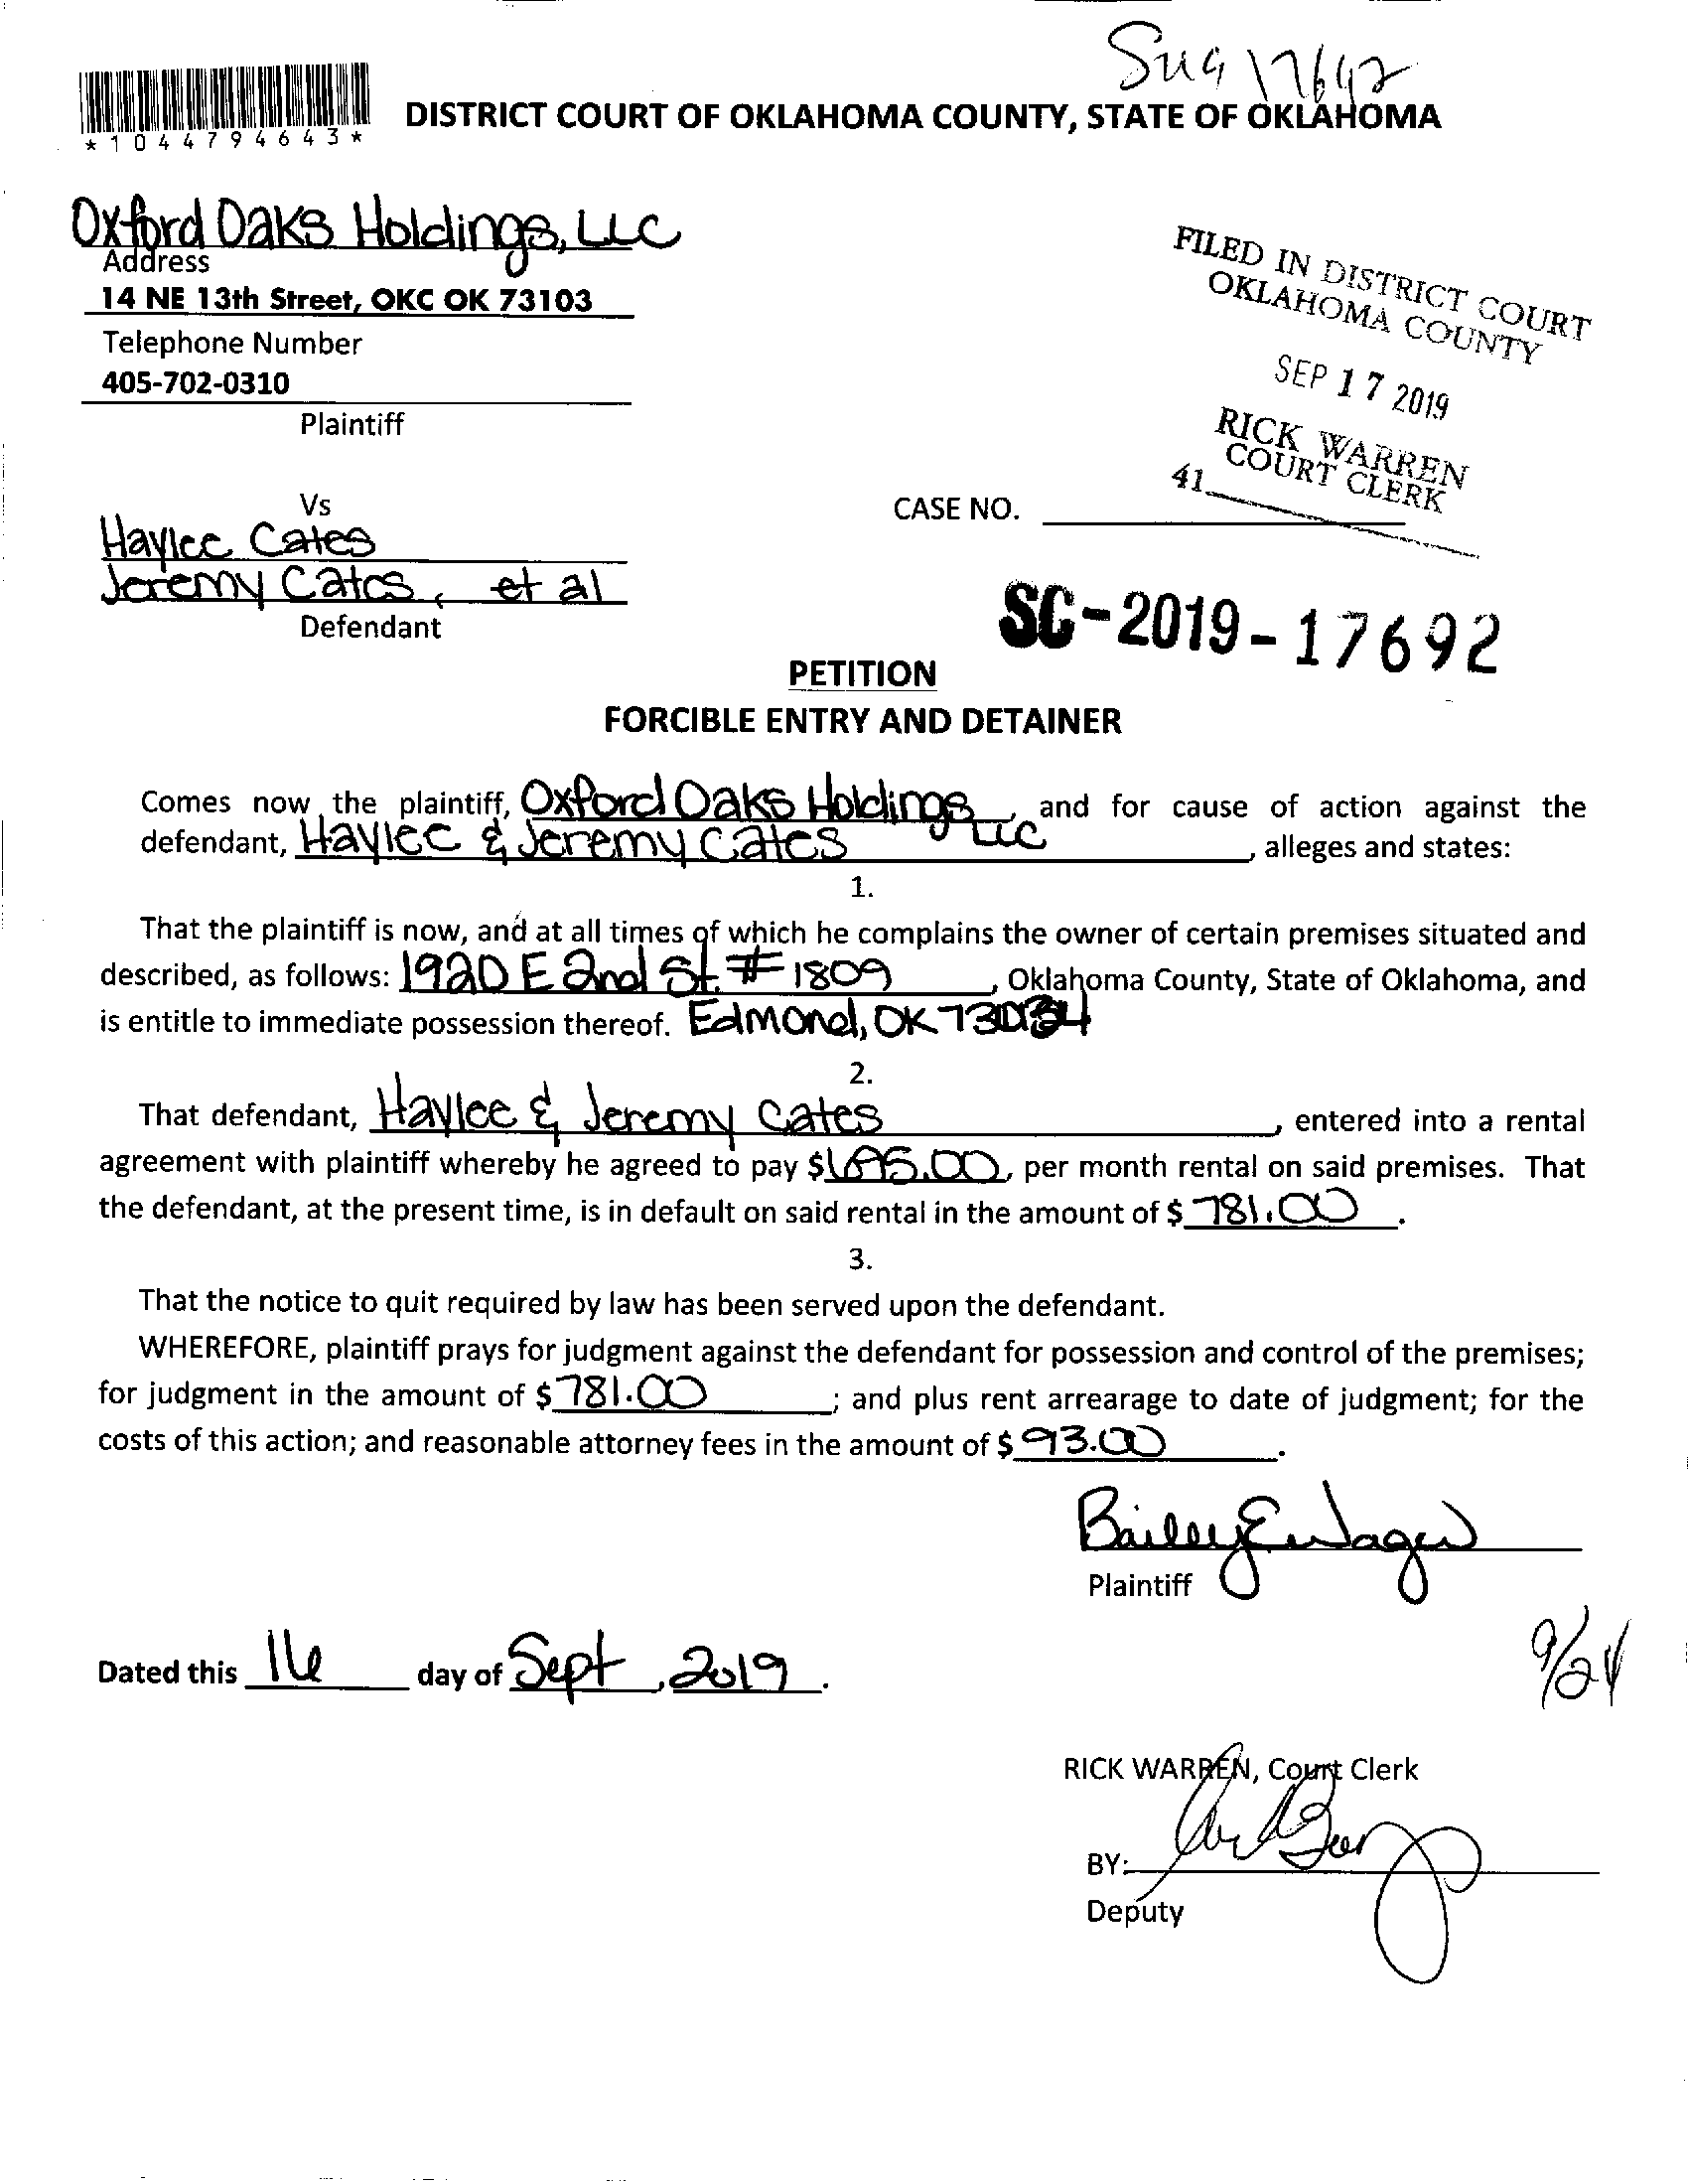 *1044794643*
DISTRICT COURT OF OKLAHOMA COUNTY, STATE OF OKLAHOMA
Oxford Oaks Holdings, LLC
Address
14 NE 13th Street, OKC OK 73103
Telephone Number
405-702-0310
Plaintiff
FILED IN DISTRICT COURT
OKLAHOMA COUNTY
SEP 17 2019
RICK WARREN
COURT CLERK
41
Vs
CASE NO.
Haylee Cates
Jeremy Cates, et al
Defendant
SC-2019-17692
PETITION
FORCIBLE ENTRY AND DETAINER
Comes now the plaintiff, Oxford Oaks Holdings LLC, and for cause of action against the
defendant, Haylee & Jeremy Cates, alleges and states:
1.
That the plaintiff is now, and at all times of which he complains the owner of certain premises situated and
described, as follows: 1920 E 2nd St. #1809, Oklahoma County, State of Oklahoma, and
is entitle to immediate possession thereof. Edmond, OK 73034
2.
That defendant, Haylee & Jeremy Cates, entered into a rental
agreement with plaintiff whereby he agreed to pay $ , per month rental on said premises. That
the defendant, at the present time, is in default on said rental in the amount of $ 781.00.
3.
That the notice to quit required by law has been served upon the defendant.
WHEREFORE, plaintiff prays for judgment against the defendant for possession and control of the premises;
for judgment in the amount of $ 781.00; and plus rent arrearage to date of judgment; for the
costs of this action; and reasonable attorney fees in the amount of $ 93.00.
Plaintiff
Dated this 16 day of Sept, 2019.
9/24
RICK WARREN, Court Clerk
BY:
Deputy